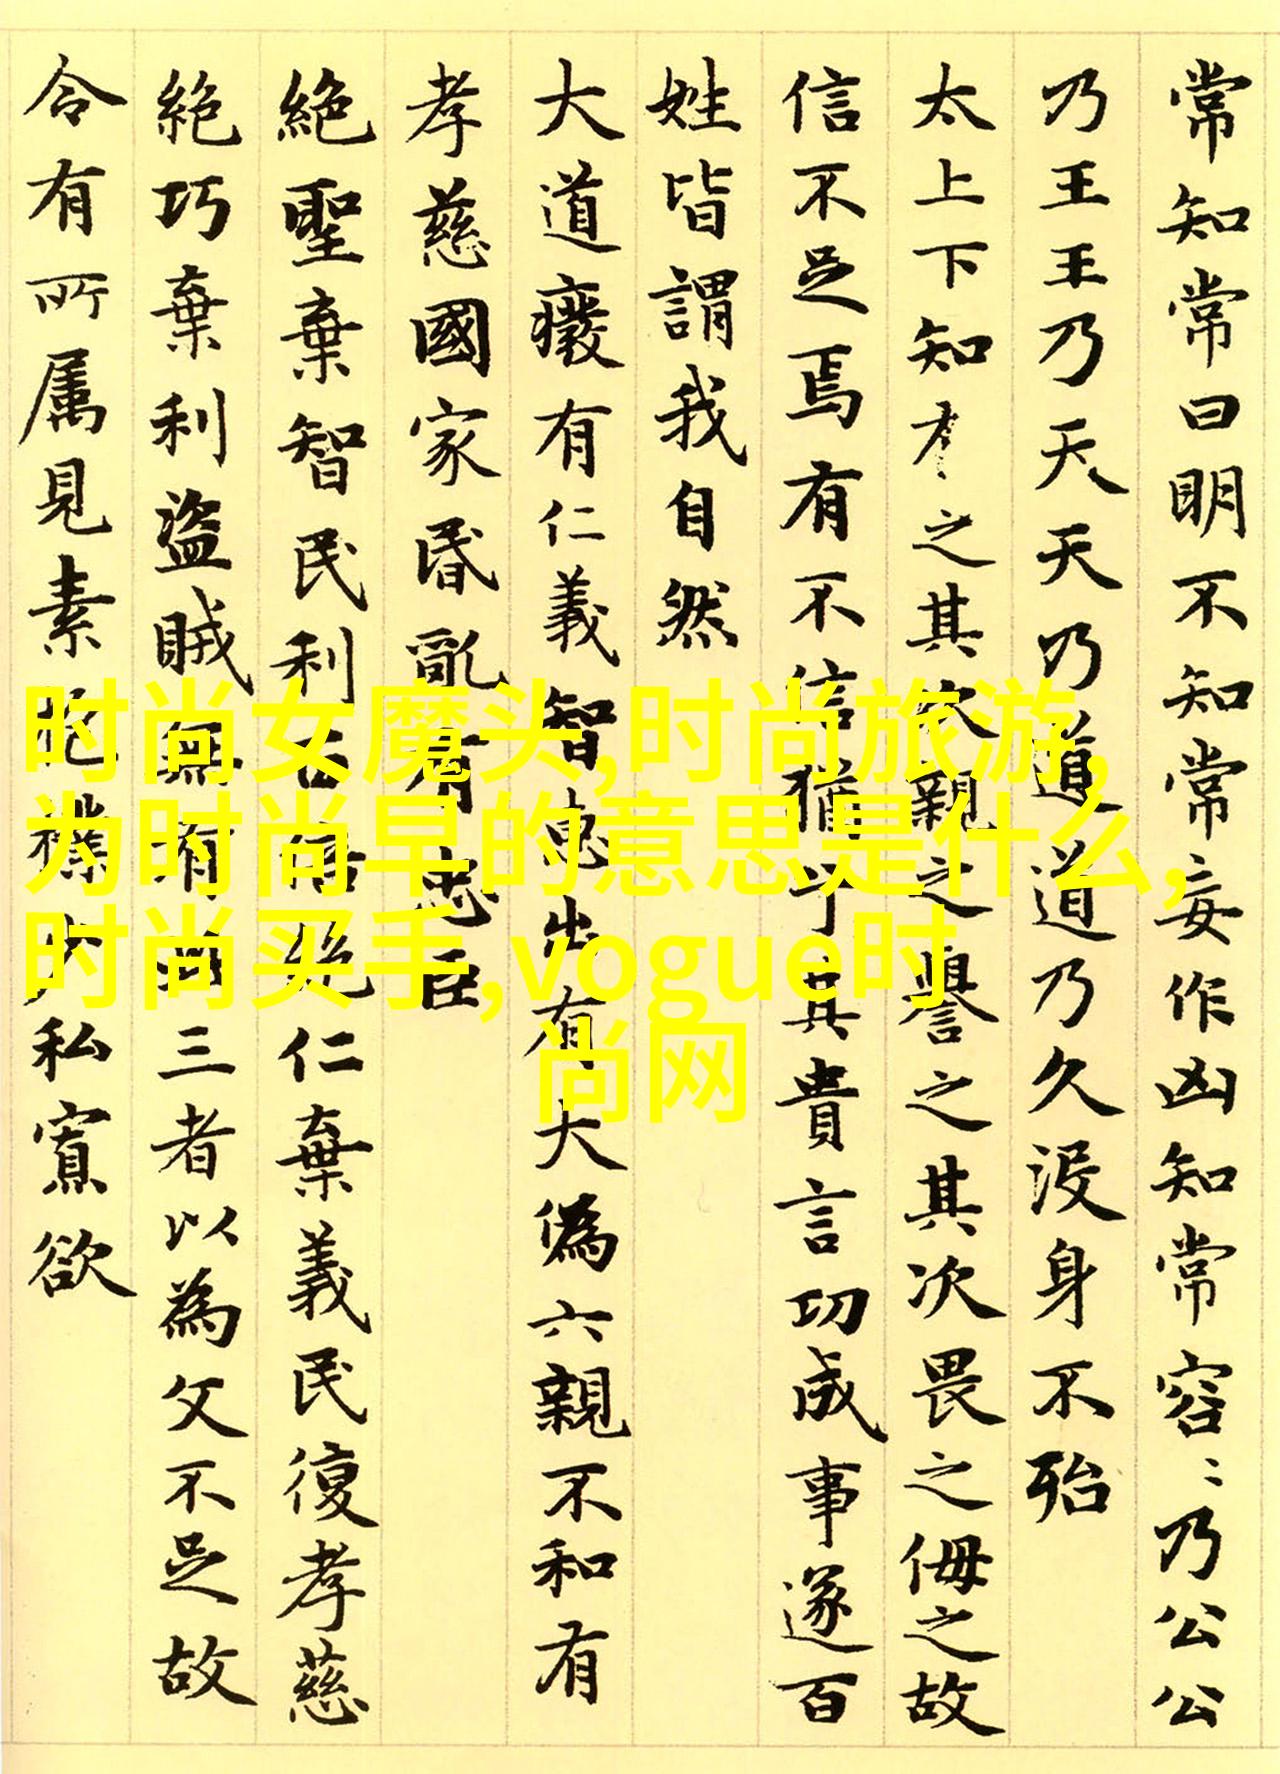 常知常曰明不知知常妄作凶知常容〻乃公公
乃王王乃天天乃道道乃久没身不殆
太上下知有之其次親之譽之其次畏之侮之故
信不足焉有不信猶乎其貴言功成事遂百
姓皆謂我自然
大道癈有仁義智惠出有大偽六親不和有
孝慈國家昏亂有忠臣
絶聖棄智民利百倍絶仁棄義民復孝慈
絶巧棄利盜賊無有此三者以為文不足故
令有所属見素抱樸少私寡欲
时尚女魔头,时尚旅游,
为时尚早的意思是什么,
时尚买手,vogue时
尚网